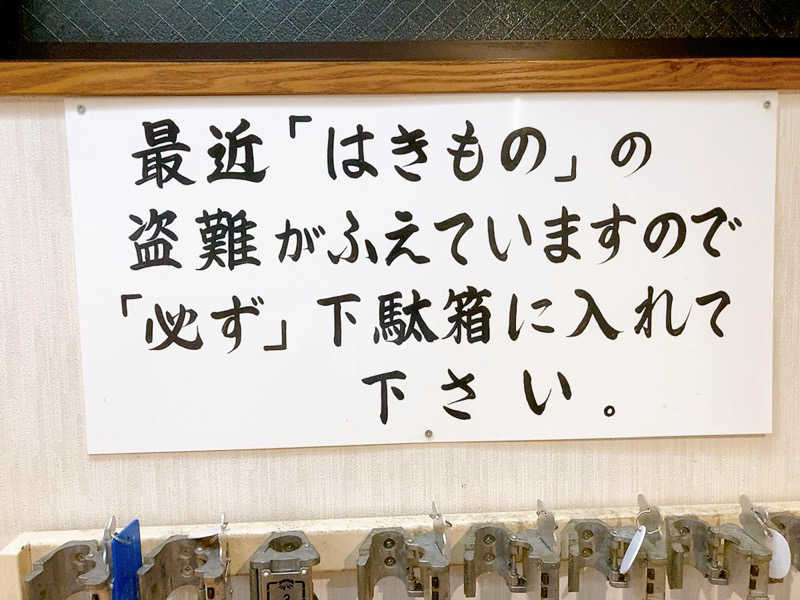 最近「はきもの」の
盗難がふえていますので
「必ず」下駄箱に入れて
下さい。